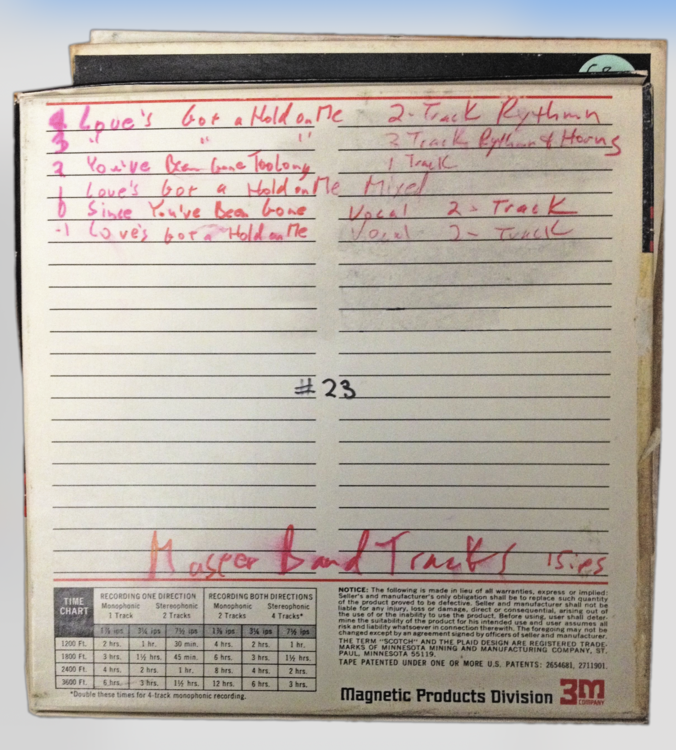 4 Love's Got a Hold on Me 2-Track Rythmn
3 " " " 2 Track Rythmn & Horns
2 You've Been Gone Too Long 1 Track
1 Love's Got a Hold on Me Mixed
0 Since You've Been Gone Vocal 2-Track
-1 Love's Got a Hold on Me Vocal 2-Track
#23
Master Band Tracks 15ips
TIME CHART
RECORDING ONE DIRECTION RECORDING BOTH DIRECTIONS
Monophonic 1 Track Stereophonic 2 Tracks Monophonic 2 Tracks Stereophonic 4 Tracks*
1⅞ ips 3¾ ips 7½ ips 1⅞ ips 3¾ ips 7½ ips
1200 Ft. 2 hrs. 1 hr. 30 min. 4 hrs. 2 hrs. 1 hr.
1800 Ft. 3 hrs. 1½ hrs. 45 min. 6 hrs. 3 hrs. 1½ hrs.
2400 Ft. 4 hrs. 2 hrs. 1 hr. 8 hrs. 4 hrs. 2 hrs.
3600 Ft. 6 hrs. 3 hrs. 1½ hrs. 12 hrs. 6 hrs. 3 hrs.
*Double these times for 4-track monophonic recording.
NOTICE: The following is made in lieu of all warranties, express or implied:
Seller's and manufacturer's only obligation shall be to replace such quantity
of the product proved to be defective. Seller and manufacturer shall not be
liable for any injury, loss or damage, direct or consequential, arising out of
the use of or the inability to use the product. Before using, user shall deter-
mine the suitability of the product for his intended use and user assumes all
risk and liability whatsoever in connection therewith. The foregoing may not be
changed except by an agreement signed by officers of seller and manufacturer.
THE TERM "SCOTCH" AND THE PLAID DESIGN ARE REGISTERED TRADE-
MARKS OF MINNESOTA MINING AND MANUFACTURING COMPANY, ST.
PAUL, MINNESOTA 55119.
TAPE PATENTED UNDER ONE OR MORE U.S. PATENTS: 2654681, 2711901.
Magnetic Products Division 3M COMPANY